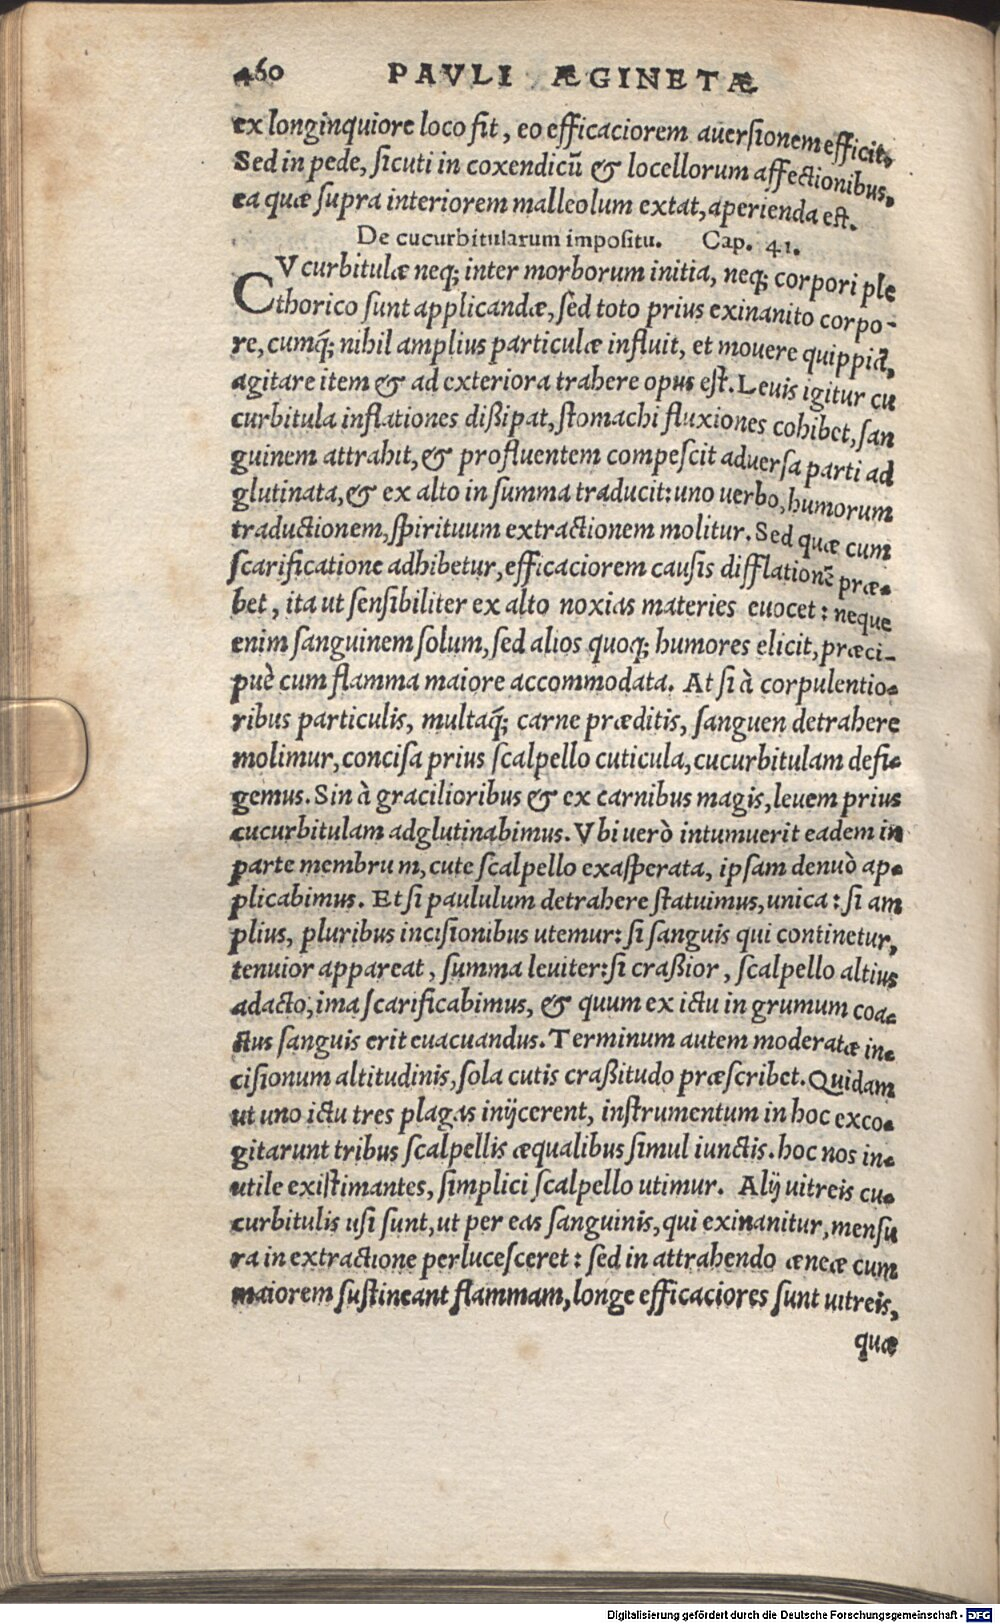 460 PAVLI ÆGINETÆ
ex longinquiore loco fit, eo efficaciorem auersionem efficit.
Sed in pede, sicuti in coxendicū & locellorum affectionibus,
ea quæ supra interiorem malleolum extat, aperienda est.
De cucurbitularum impositu. Cap. 41.
CVcurbitulæ neq; inter morborum initia, neq; corpori ple
thorico sunt applicandæ, sed toto prius exinanito corpo-
re, cumq̃; nihil amplius particulæ influit, et mouere quippiā,
agitare item & ad exteriora trahere opus est. Leuis igitur cu
curbitula inflationes dißipat, stomachi fluxiones cohibet, san
guinem attrahit, & profluentem compescit aduersa parti ad
glutinata, & ex alto in summa traducit: uno uerbo, humorum
traductionem, spirituum extractionem molitur. Sed quæ cum
scarificatione adhibetur, efficaciorem causis difflationē præ-
bet, ita ut sensibiliter ex alto noxias materies euocet: neque
enim sanguinem solum, sed alios quoq; humores elicit, præci-
puè cum flamma maiore accommodata. At si à corpulentio-
ribus particulis, multaq̃; carne præditis, sanguen detrahere
molimur, concisa prius scalpello cuticula, cucurbitulam defi-
gemus. Sin à gracilioribus & ex carnibus magis, leuem prius
cucurbitulam adglutinabimus. Vbi uerò intumuerit eadem in
parte membrum, cute scalpello exasperata, ipsam denuò ap-
plicabimus. Et si paululum detrahere statuimus, unica: si am
plius, pluribus incisionibus utemur: si sanguis qui continetur,
tenuior appareat, summa leuiter: si craßior, scalpello altius
adacto, ima scarificabimus, & quum ex ictu in grumum coa-
ctus sanguis erit euacuandus. Terminum autem moderatæ in-
cisionum altitudinis, sola cutis craßitudo præscribet. Quidam
ut uno ictu tres plagas inijcerent, instrumentum in hoc exco-
gitarunt tribus scalpellis æqualibus simul iunctis. hoc nos in-
utile existimantes, simplici scalpello utimur. Alij uitreis cu-
curbitulis usi sunt, ut per eas sanguinis, qui exinanitur, mensu
ra in extractione perlucesceret: sed in attrahendo æneæ cum
maiorem sustineant flammam, longe efficaciores sunt uitreis,
quæ
Digitalisierung gefördert durch die Deutsche Forschungsgemeinschaft - DFG